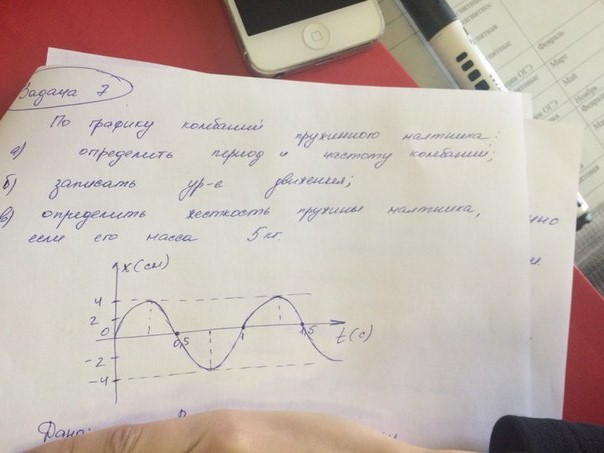 Задача 7
По графику колбаний пружинного маятника:
а) определить период и частоту колбаний;
б) записать ур-е движения;
в) определить жесткость пружины маятника,
если его масса 5 кг
x(см)
4
2
0
0,5
1
1,5
t(с)
-2
-4
Дано:
Февраль
Март
Май
Ноябрь